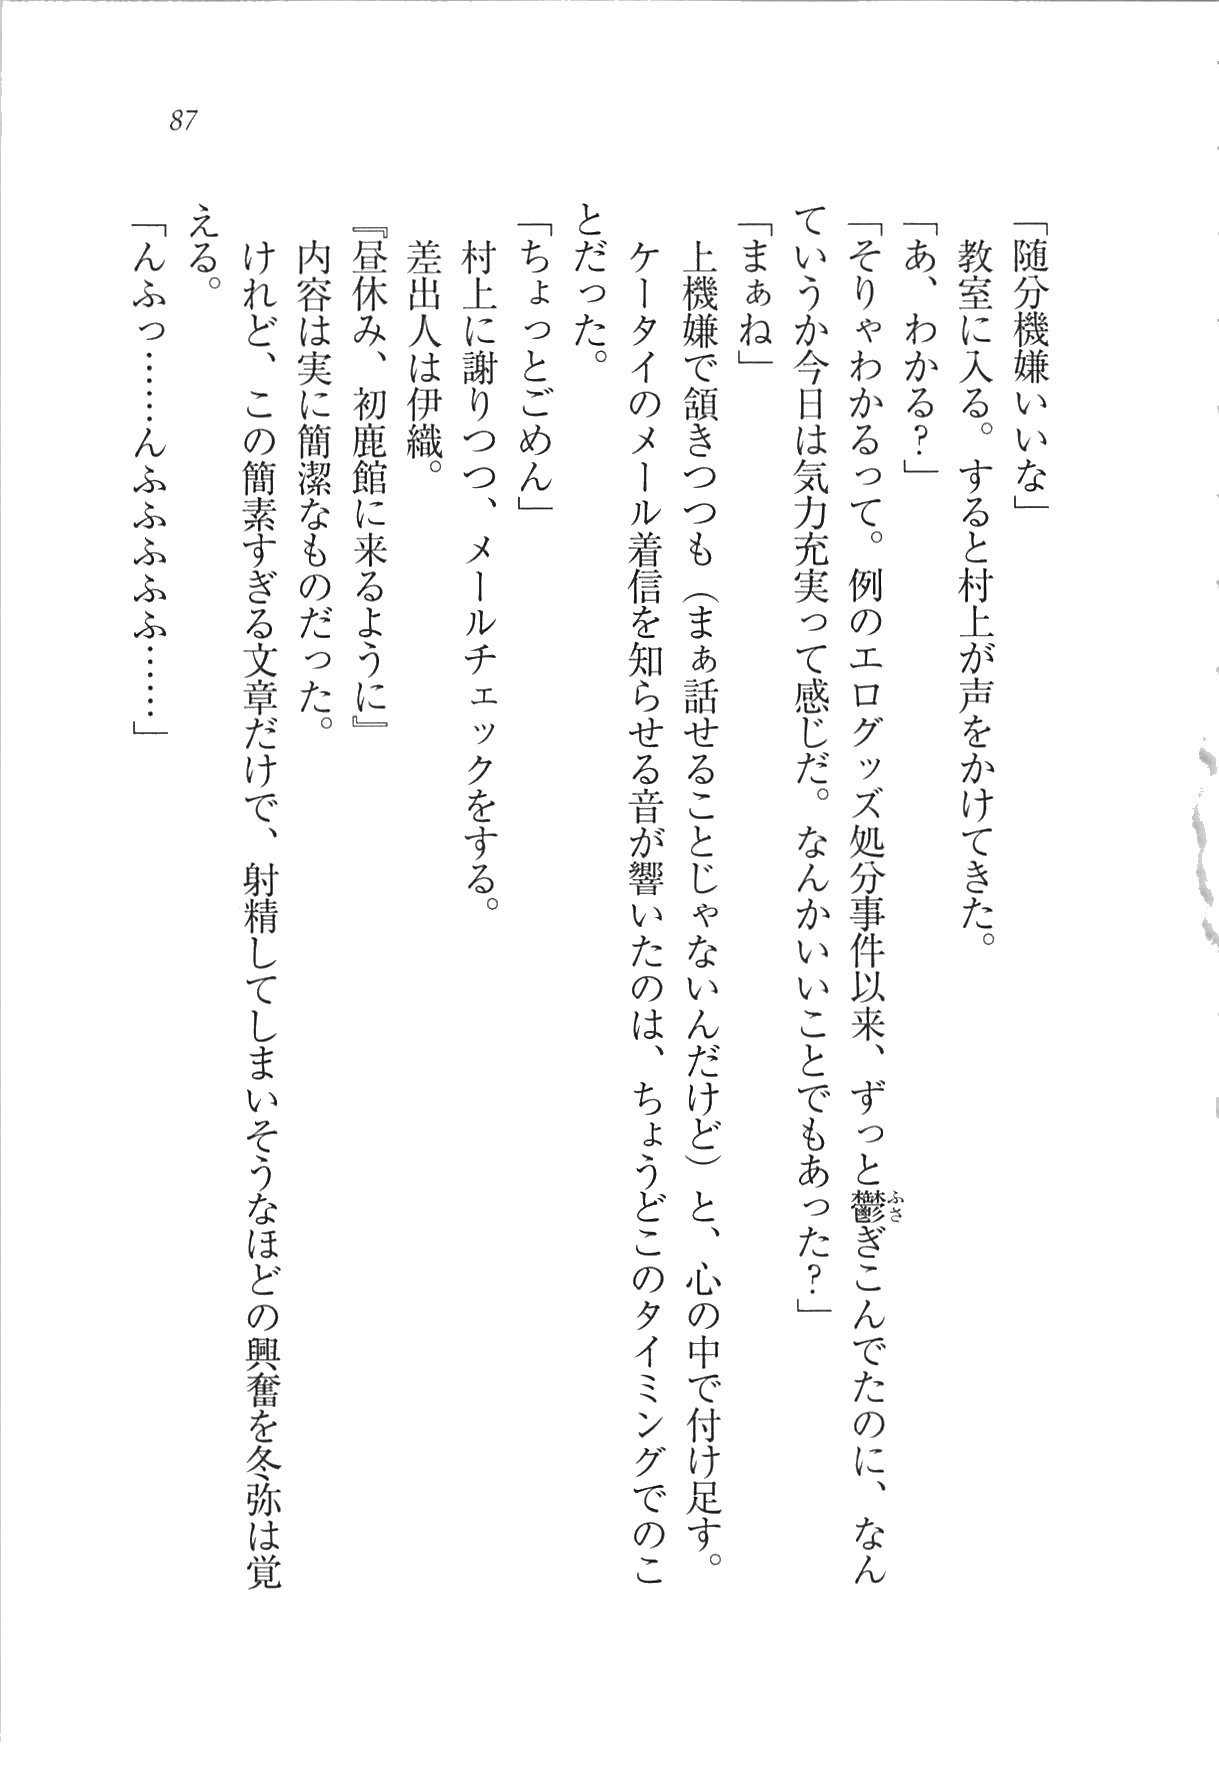 87
「随分機嫌いいな」
教室に入る。すると村上が声をかけてきた。
「あ、わかる？」
「そりゃわかるって。例のエログッズ処分事件以来、ずっと鬱ぎこんでたのに、なん
ふさ
ていうか今日は気力充実って感じだ。なんかいいことでもあった？」
「まぁね」
上機嫌で頷きつつも（まぁ話せることじゃないんだけど）と、心の中で付け足す。
ケータイのメール着信を知らせる音が響いたのは、ちょうどこのタイミングでのこ
とだった。
「ちょっとごめん」
村上に謝りつつ、メールチェックをする。
差出人は伊織。
『昼休み、初鹿館に来るように』
内容は実に簡潔なものだった。
けれど、この簡素すぎる文章だけで、射精してしまいそうなほどの興奮を冬弥は覚
える。
「んふっ……んふふふふふ……」